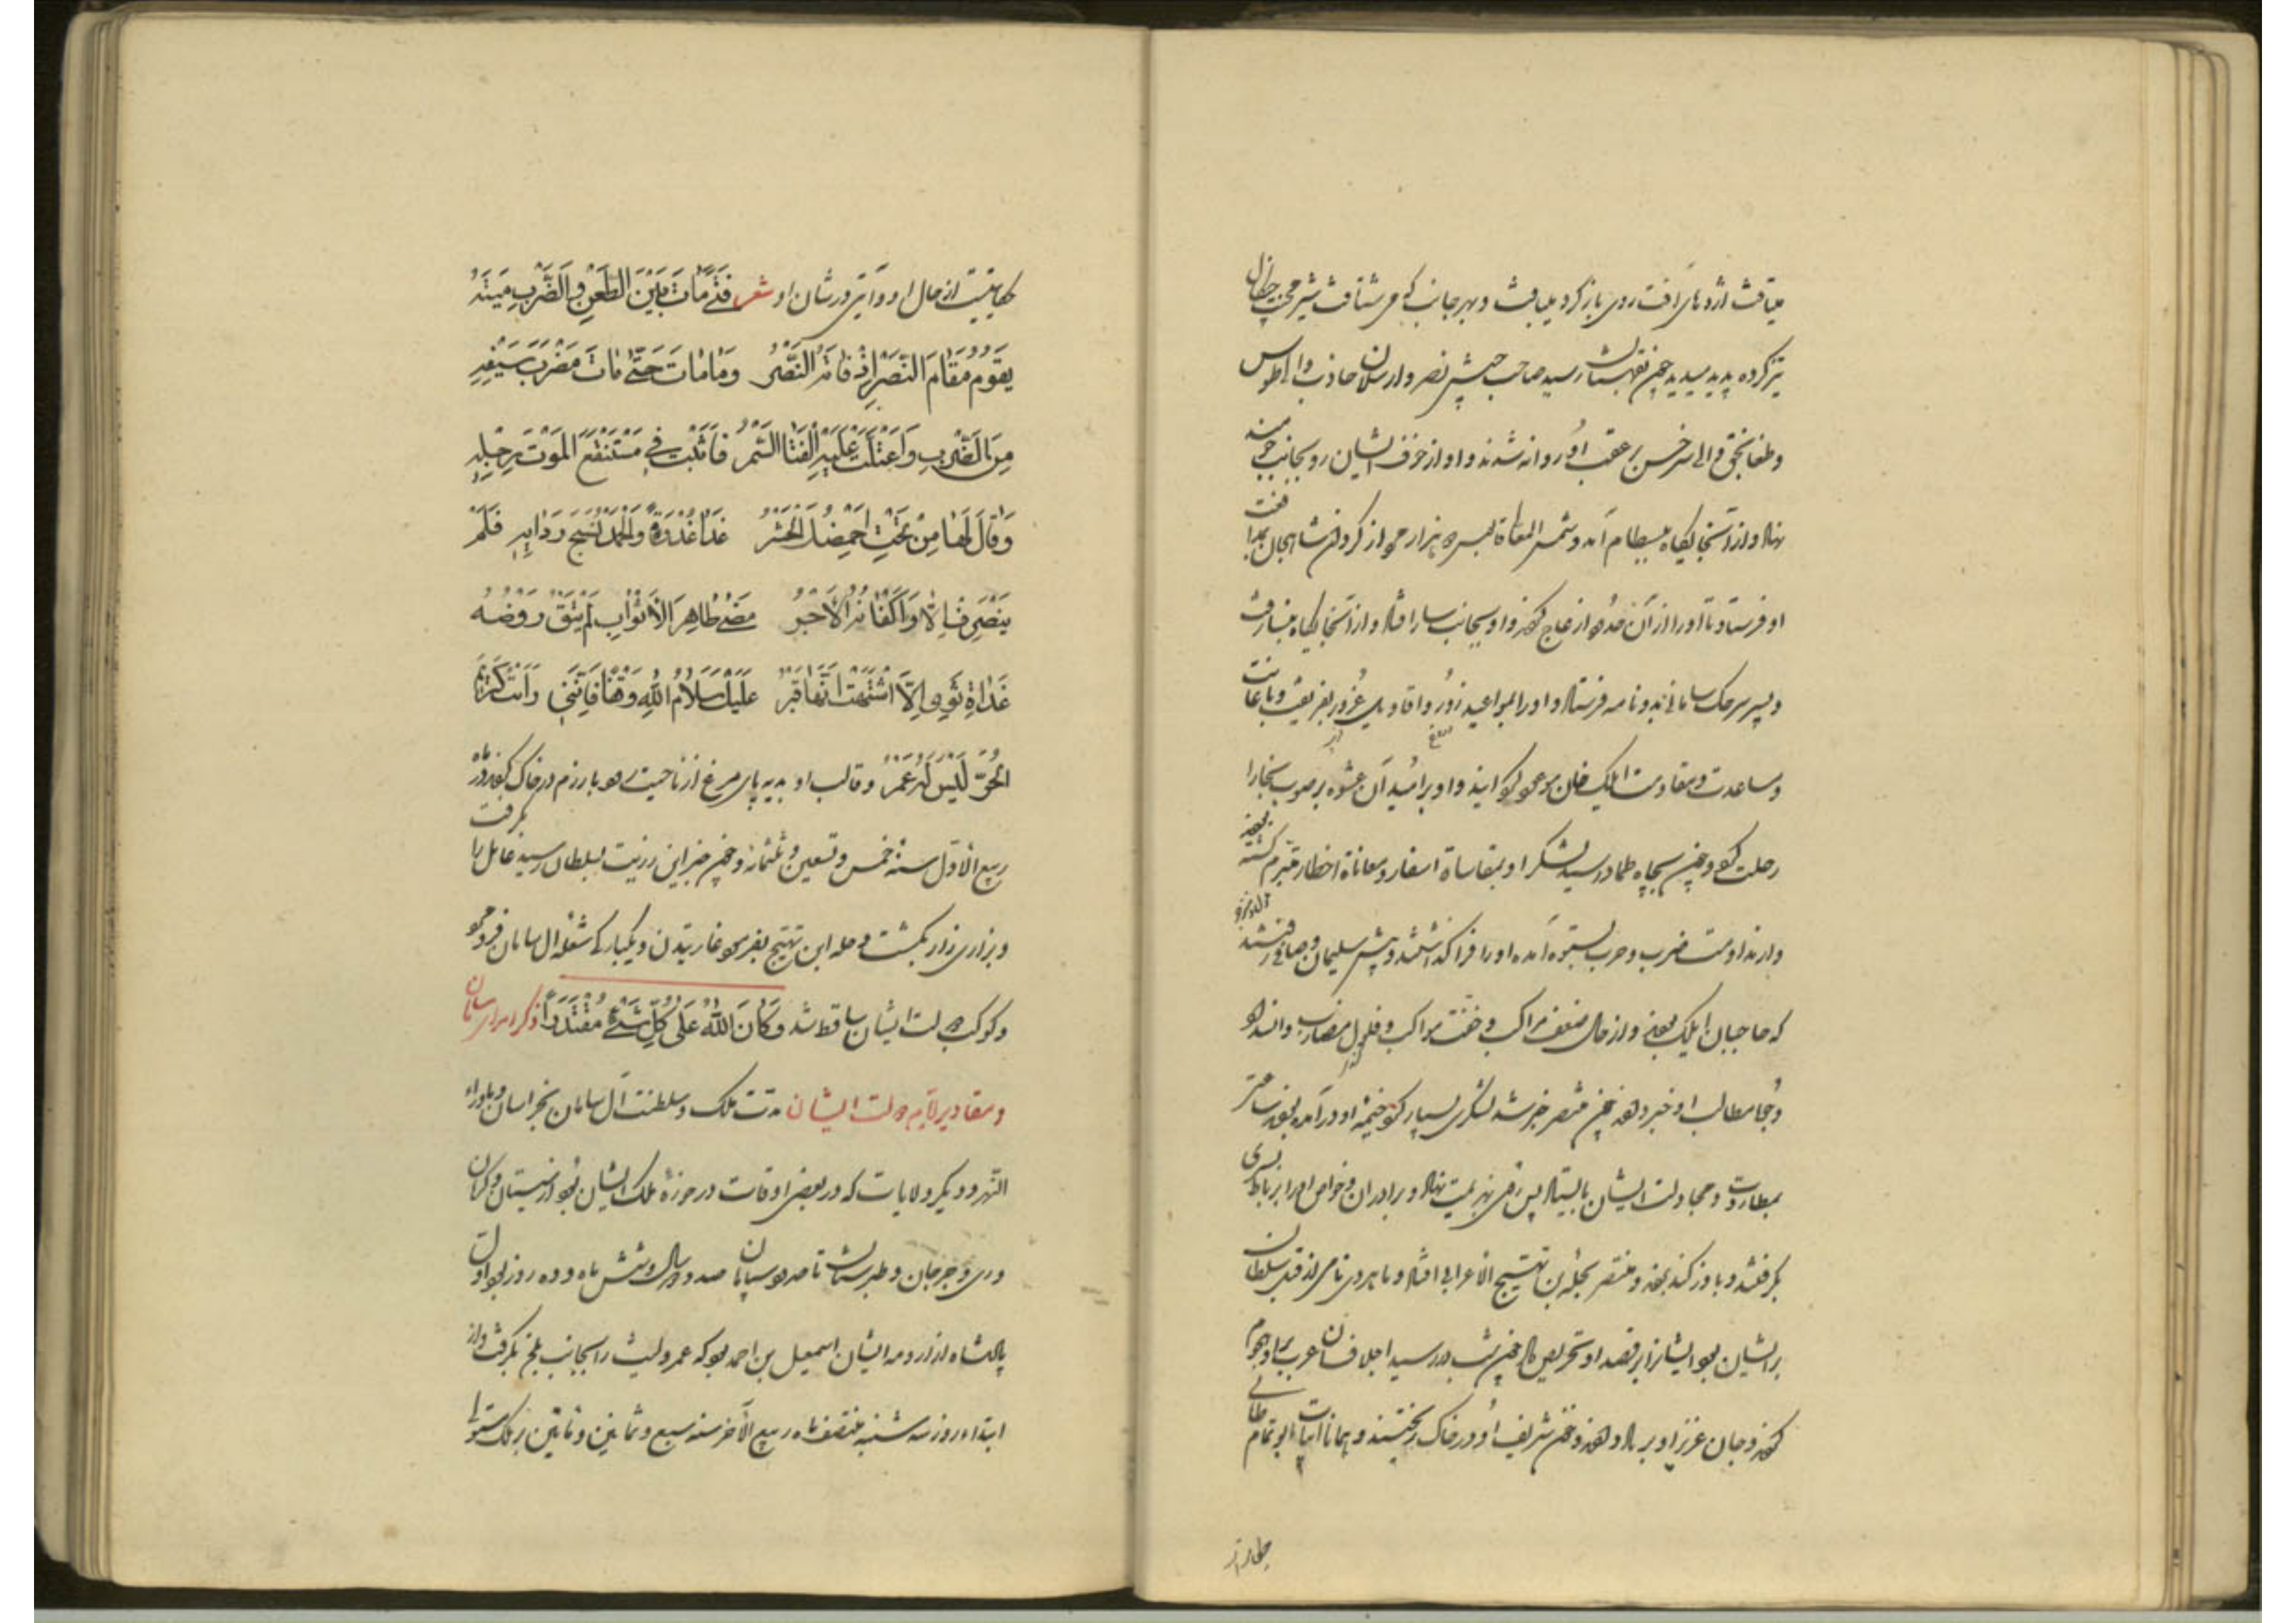 میتافت اژدهای آفت روی باز کرده مییافت و بهر جانب که می شتافت شیر محنت چنگال
تیز کرده پدید میدید چون بقهستان رسید صاحب جیش نصر و ارسلان جاذب والی طوس
و طغانجق والی سرخس بر عقب او روانه شدند و او از خوف ایشان رو بجانب جومند
نهاد و از آنجایگاه ببسطام آمد و شمس المعالی قابوس دو هزار مرد از کردان شاهجان بمدافعت
او فرستاد تا او را از آن حدود ازعاج کردند و او بجانب بیار افتاد و از آنجایگاه بنسا رفت
و پسر سرخک سامانی بدو نامه فرستاد و او را بمواعید زور و اقاویل غرور بفریفت و باعانت
و مساعدت و مقاومت ایلک خان موعود گردانید و او بر امید آن عشوه بر صوب بخارا
رحلت کرد و چون بچاه حماد رسید لشکر او بمقاساة اسفار و معاناة اخطار متبرم گشته بودند
و از مداومت ضرب و حرب بستوه آمده او را فرا گذاشتند و پیش سلیمان و صافی رفتند
که حاجبان ایلک بودند و از حال ضعف مراکب و خفت مواکب و فلول مضارب و انسداد
وجوه مطالب او خبر دادند چون منتصر خبر شد لشکری بسیار گرد خیمه او درآمده بودند ساعتی
بمطاردت و مجاولت ایشان بایستاد پس روی بهزیمت نهاد و برادران و خواص او را بر رباط بسری
بگرفتند و باوزکند بردند و منتصر بحله ابن بهیج الاعرابی افتاد و ماهروی نامی از قبل سلطان
بر ایشان بود ایشانرا بر قصد او تحریض داد چون شب در رسید اجلاف آن عرب بر او هجوم
کردند و جان عزیز او بر باد دادند و خون شریف او در خاک ریختند و همانا ابیات ابو تمام طائی
حکایتیست از حال او و آیتی در شان او شعر فَتًى مَاتَ بَيْنَ الطَّعْنِ وَالضَّرْبِ مِيتَةً
يَقُومُ مَقَامَ النَّصْرِ إِذْ فَاتَهُ النَّصْرُ وَمَا مَاتَ حَتَّى مَاتَ مَضْرَبُ سَيْفِهِ
مِنَ الضَّرْبِ وَاعْتَلَّتْ عَلَيْهِ الْقَنَا السُّمْرُ فَأَثْبَتَ فِي مُسْتَنْقَعِ الْمَوْتِ رِجْلَهُ
وَقَالَ لَهَا مِنْ تَحْتِ أَخْمَصِكِ الْحَشْرُ غَدَا غُدْوَةً وَالْحَمْدُ نَسْجُ رِدَائِهِ فَلَمْ
يَنْصَرِفْ إِلَّا وَأَكْفَانُهُ الْأَجْرُ مَضَى طَاهِرَ الْأَثْوَابِ لَمْ تَبْقَ رَوْضَةٌ
غَدَاةَ ثَوَى إِلَّا اشْتَهَتْ أَنَّهَا قَبْرُ عَلَيْكَ سَلَامُ اللَّهِ وَقْفًا فَإِنَّنِي رَأَيْتُ كَرِيمَ
الْحُرِّ لَيْسَ لَهُ عُمْرُ و قالب او بدیه پای مرغ از ناحیت رودبار زم در خاک کردند در ماه
ربیع الاول سنة خمس و تسعین و ثلثمائه و چون خبر این رزیت بسلطان رسید عامل را بگرفت
و بزاری زار بکشت و حله ابن بهیج بفرمود غارتیدن و یکبارگی شعله آل سامان فرو مرد
و کوکب دولت ایشان ساقط شد وَكَانَ اللهُ عَلَى كُلِّ شَيْءٍ مُقْتَدِرًا ذکر امرای سامان
و مقادیر ایام دولت ایشان مدت ملک و سلطنت آل سامان بخراسان و ماوراء
النهر و دیگر ولایات که در بعضی اوقات در حوزه ملک ایشان بود از سیستان و کرمان
و ری و جرجان و طبرستان تا حدود سپاهان صد و دو سال و شش ماه و ده روز بود اول
پادشاه از زمره ایشان اسمعیل بن احمد بود که عمرو لیث را بجانب بلخ بگرفت و از
ابتداء روز سه شنبه منتصف ماه ربیع الآخر سنه سبع و ثمانین و مأتین بر ملک مستولی